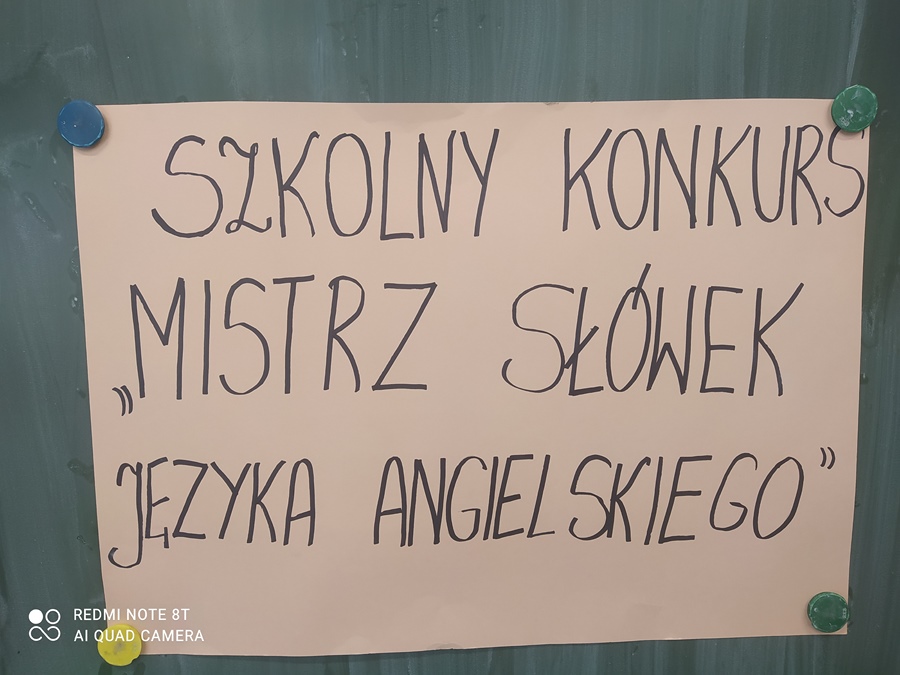 SZKOLNY KONKURS
„MISTRZ SŁÓWEK
JĘZYKA ANGIELSKIEGO”
REDMI NOTE 8T
AI QUAD CAMERA